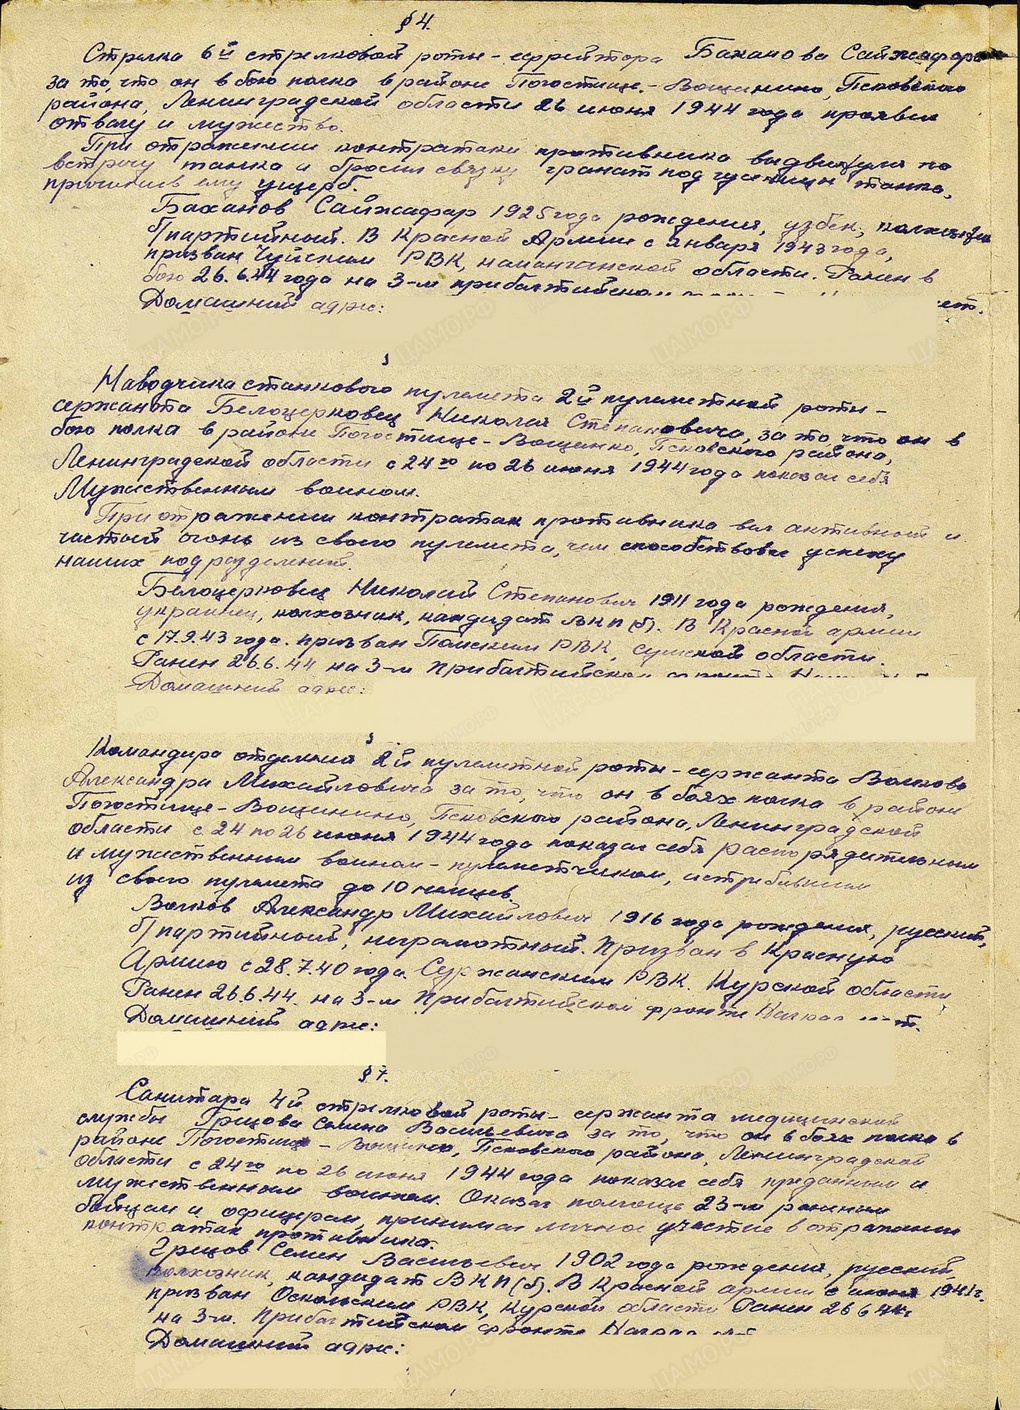 § 4.
Стрелка 6й стрелковой роты - ефрейтора Баханова Сайжафара
за то, что он в бою полка в районе Погостище - Вощинино, Псковского
района, Ленинградской области 26 июня 1944 года проявил
отвагу и мужество.
При отражении контратаки противника выдвинулся на
встречу танка и бросил связку гранат под гусеницы танка,
причинив ему ущерб.
Баханов Сайжафар 1925 года рождения, узбек, колхозник
б/партийный. В Красной Армии с января 1943 года,
призван Чуйским РВК, наманганской области. Ранен в
бою 26.6.44 года на 3-м прибалтийском
Домашний адрес:
Наводчика станкового пулемета 2й пулеметной роты -
сержанта Белоцерковец Николая Степановича, за то, что он в
бою полка в районе Погостище - Вощинино, Псковского района,
Ленинградской области с 24го по 26 июня 1944 года показал себя
Мужественным воином.
При отражении контратак противника вел активный и
частый огонь из своего пулемета, чем способствовал успеху
наших подразделений.
Белоцерковец Николай Степанович 1911 года рождения,
украинец, колхозник, кандидат ВКП(б). В Красной армии
с 17.9.43 года. призван РВК, сумской области.
Ранен 26.6.44 на 3-м Прибалтийском
Домашний адрес:
Командира отделения 2й пулеметной роты - сержанта Волкова
Александра Михайловича за то, что он в боях полка в районе
Погостище - Вощинино, Псковского района, Ленинградской
области с 24 по 26 июня 1944 года показал себя распорядительным
и мужественным воином - пулеметчиком, истребившим
из своего пулемета до 10 немцев.
Волков Александр Михайлович 1916 года рождения, русский,
б/партийный, неграмотный. Призван в Красную
Армию с 28.7.40 года Суржанским РВК. Курской области
Ранен 26.6.44. на 3-м Прибалтийском фронте
Домашний адрес:
§ 7.
Санитара 4й стрелковой роты - сержанта медицинской
службы Грецова Семена Васильевича за то, что он в боях полка в
районе Погостище - Вощинино, Псковского района, Ленинградской
области с 24го по 26 июня 1944 года показал себя преданным и
мужественным воином. Оказал помощь 23-м раненым
бойцам и офицерам, принимал личное участие в отражении
контратак противника.
Грецов Семен Васильевич 1902 года рождения, русский,
колхозник, кандидат ВКП(б). В Красной армии с июня 1941г.
призван Оскольским РВК, Курской области Ранен 26.6.44г
на 3-м. Прибалтийском фронте
Домашний адрес: